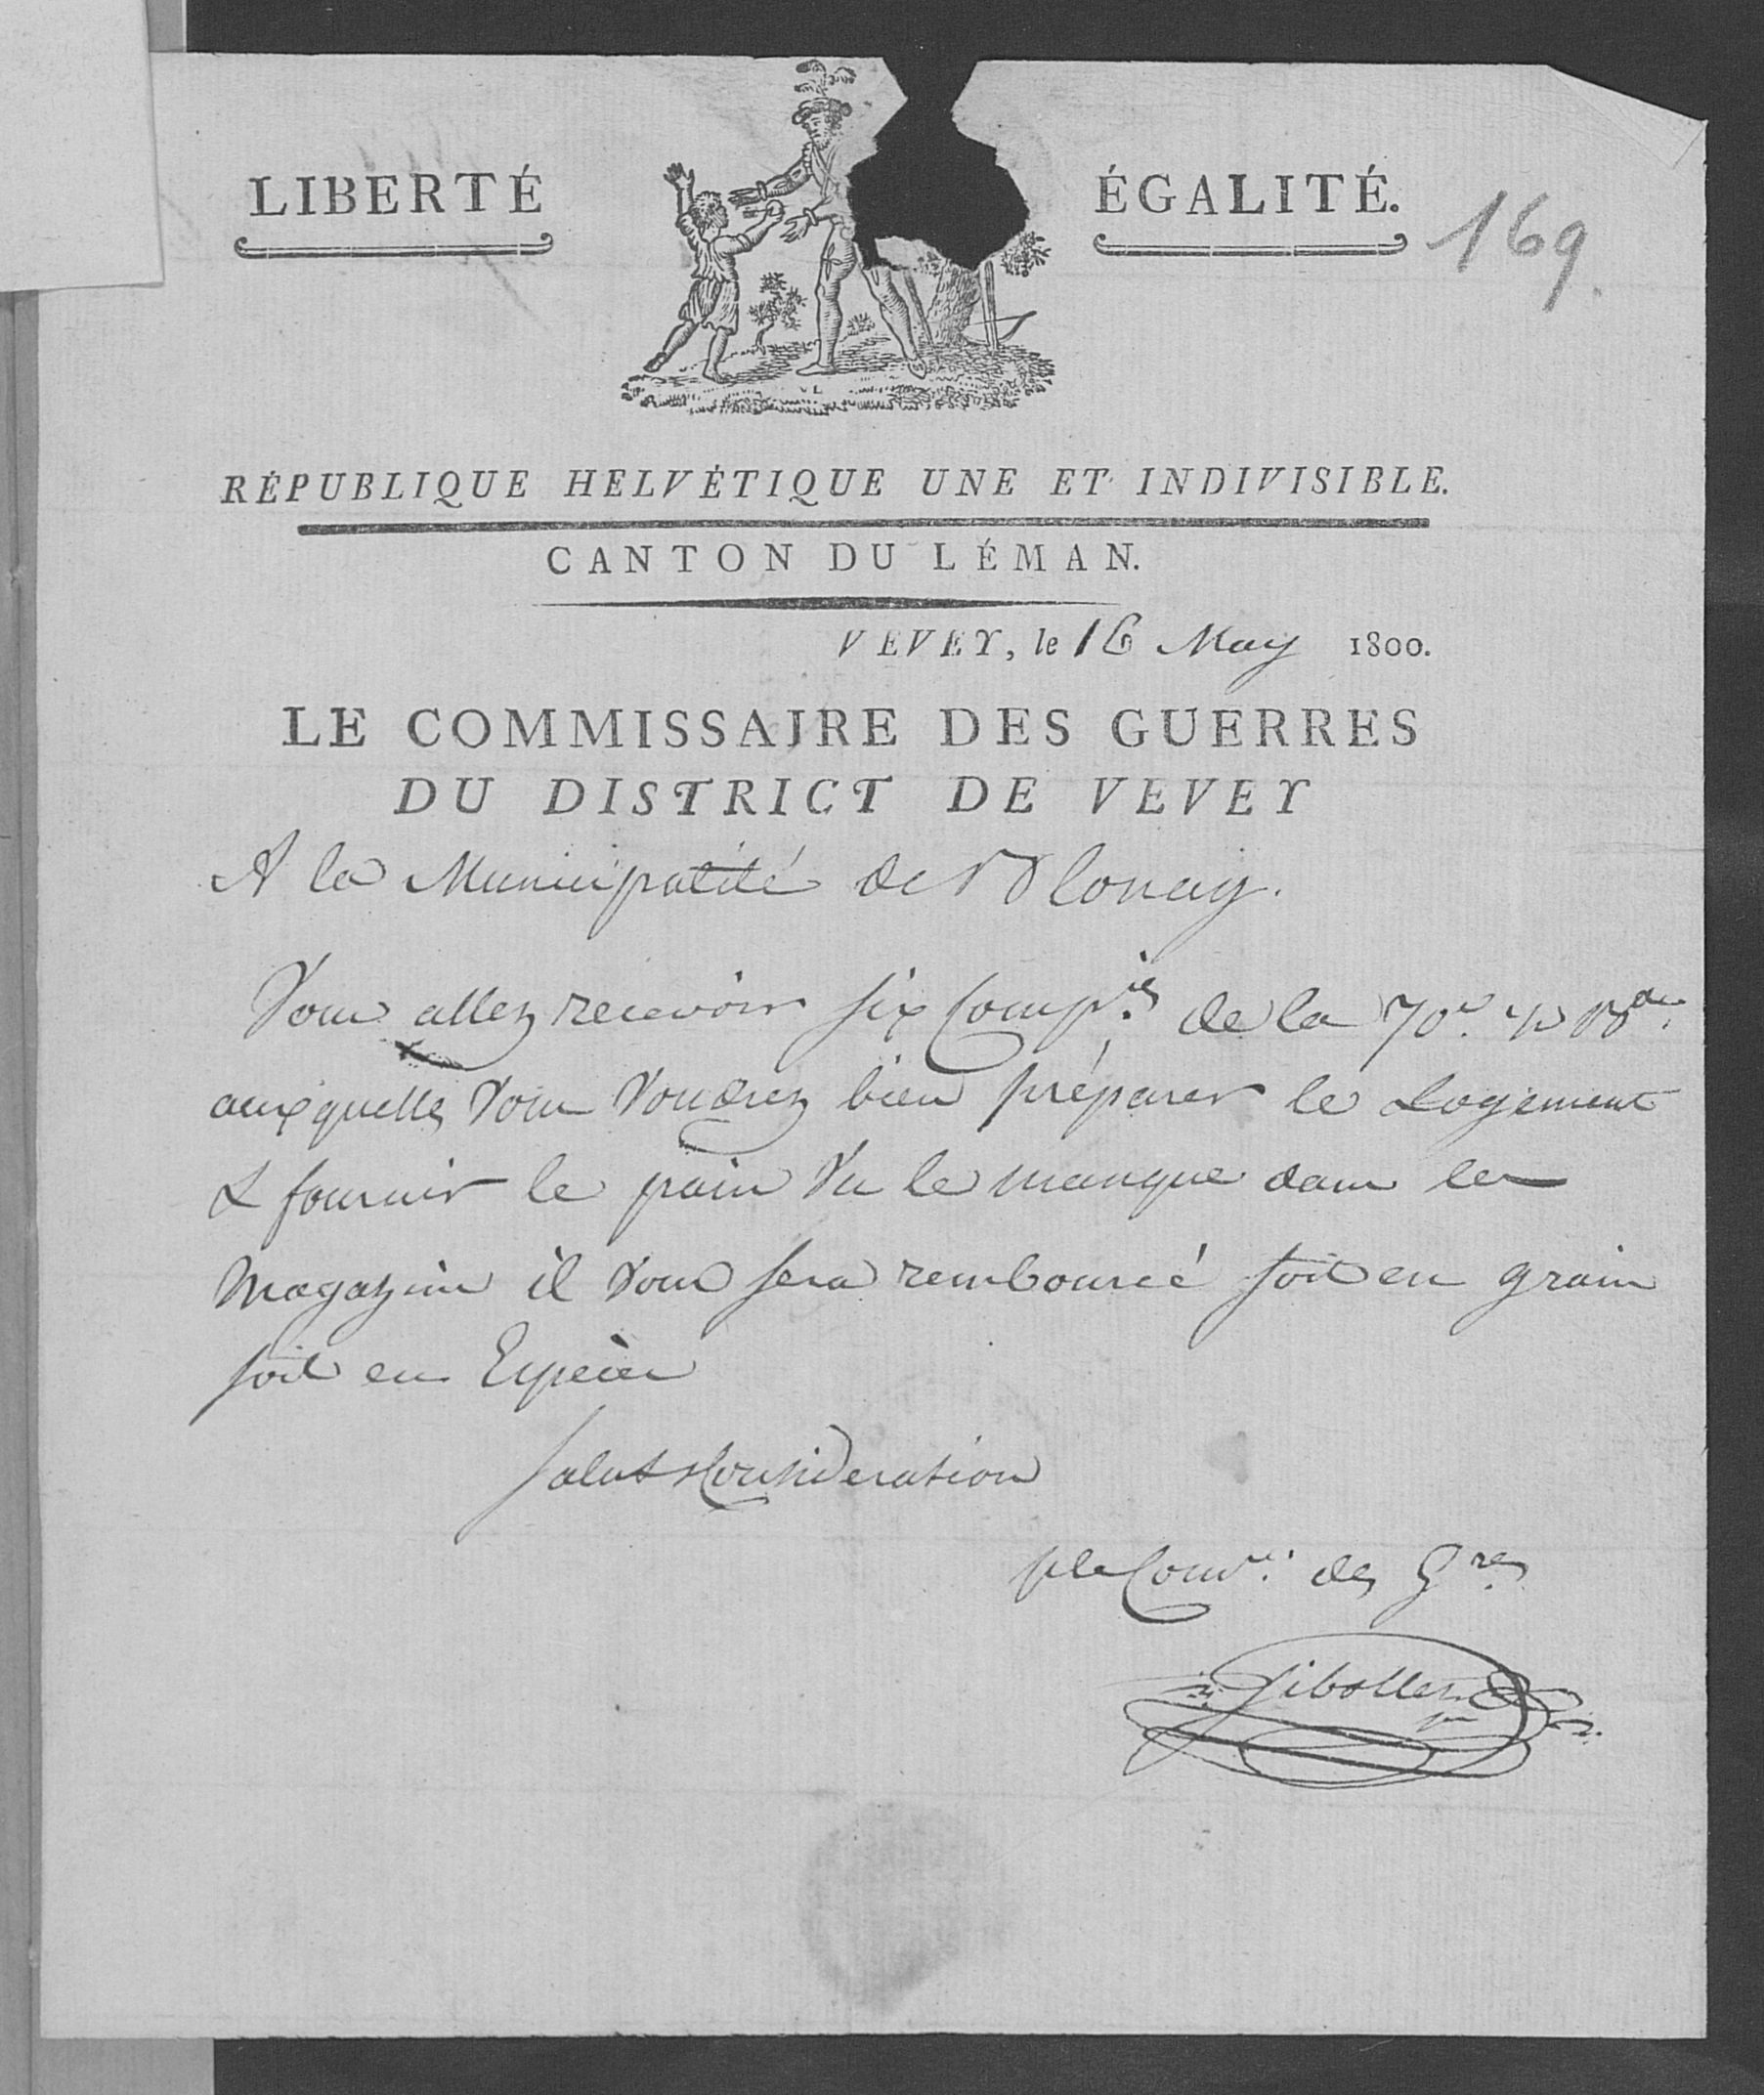 LIBERTÉ ÉGALITÉ.
169.
RÉPUBLIQUE HELVÉTIQUE UNE ET INDIVISIBLE.
CANTON DU LÉMAN.
VEVEY, le 16 May 1800.
LE COMMISSAIRE DES GUERRES
DU DISTRICT DE VEVEY
A la Municipalité de Blonay.
Vous allez recevoir six Comp.ies de la 70.e ½ B.de
auxquelles vous voudrez bien préparer le Logement
& fournir le pain vu le manque dans les
Magazins il vous sera remboursé soit en grain
soit en Espèces
Salut & Consideration
p le Com.re des G.res